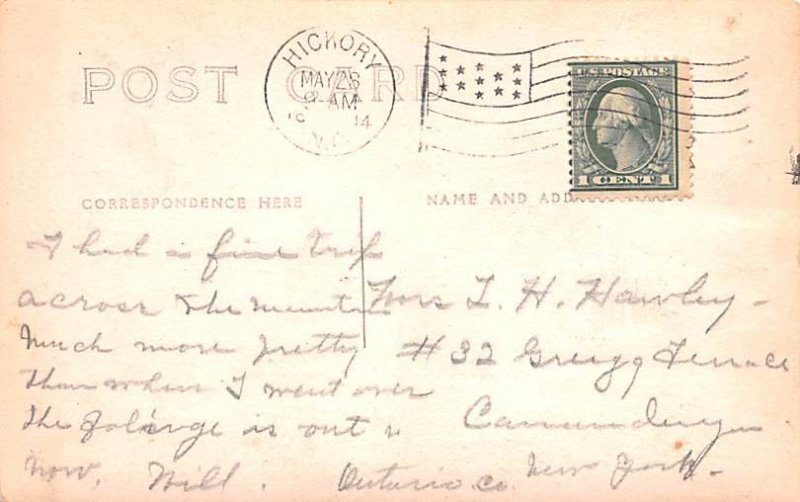 POST CARD
HICKORY
MAY 28
AM
1914
N.C.
U.S. POSTAGE
1 CENT 1
CORRESPONDENCE HERE
NAME AND ADD
I had a fine trip
across the mountains
Much more pretty
than when I went over
the foliage is out
now. Will.
Mrs L. H. Hawley
# 32 Gregg Terrace
Canandaigua
Ontario Co. New York